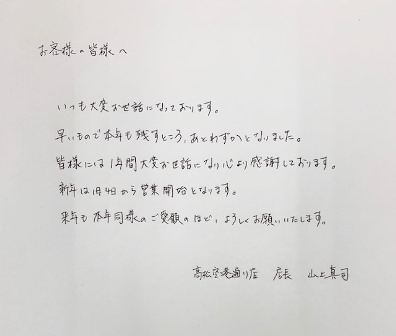 お客様の皆様へ
いつも大変お世話になっております。
早いもので本年も残すところ、あとわずかとなりました。
皆様には1年間大変お世話になり心より感謝しております。
新年は1月4日から営業開始となります。
来年も本年同様のご愛顧のほど、よろしくお願いいたします。
高松空港通り店 店長 山上真司